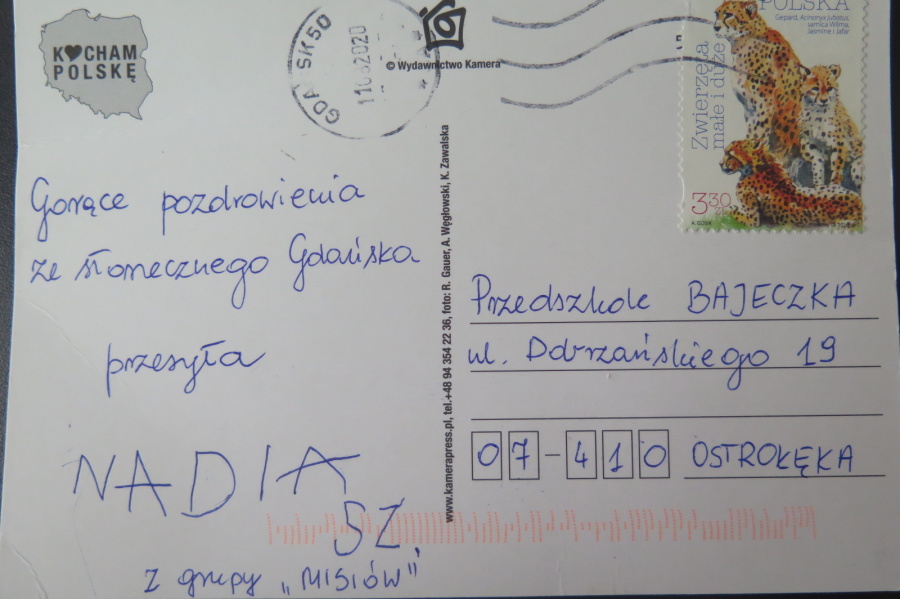 K♥CHAM
POLSKĘ
GDAŃSK 50
© Wydawnictwo Kamera
POLSKA
Gepard, Acinonyx jubatus,
samica Wilma,
Jasmine i Jafar
Zwierzęta
małe i duże
3,30 zł
Gorące pozdrowienia
ze słonecznego Gdańska
przesyła
NADIA
SZ.
z grupy „MISIÓW”
www.kamerapress.pl, tel.+48 94 354 22 36, foto: R. Gauer, A. Węgłowski, K. Zawalska
Przedszkole BAJECZKA
ul. Dobrzańskiego 19
07-410 OSTROŁĘKA